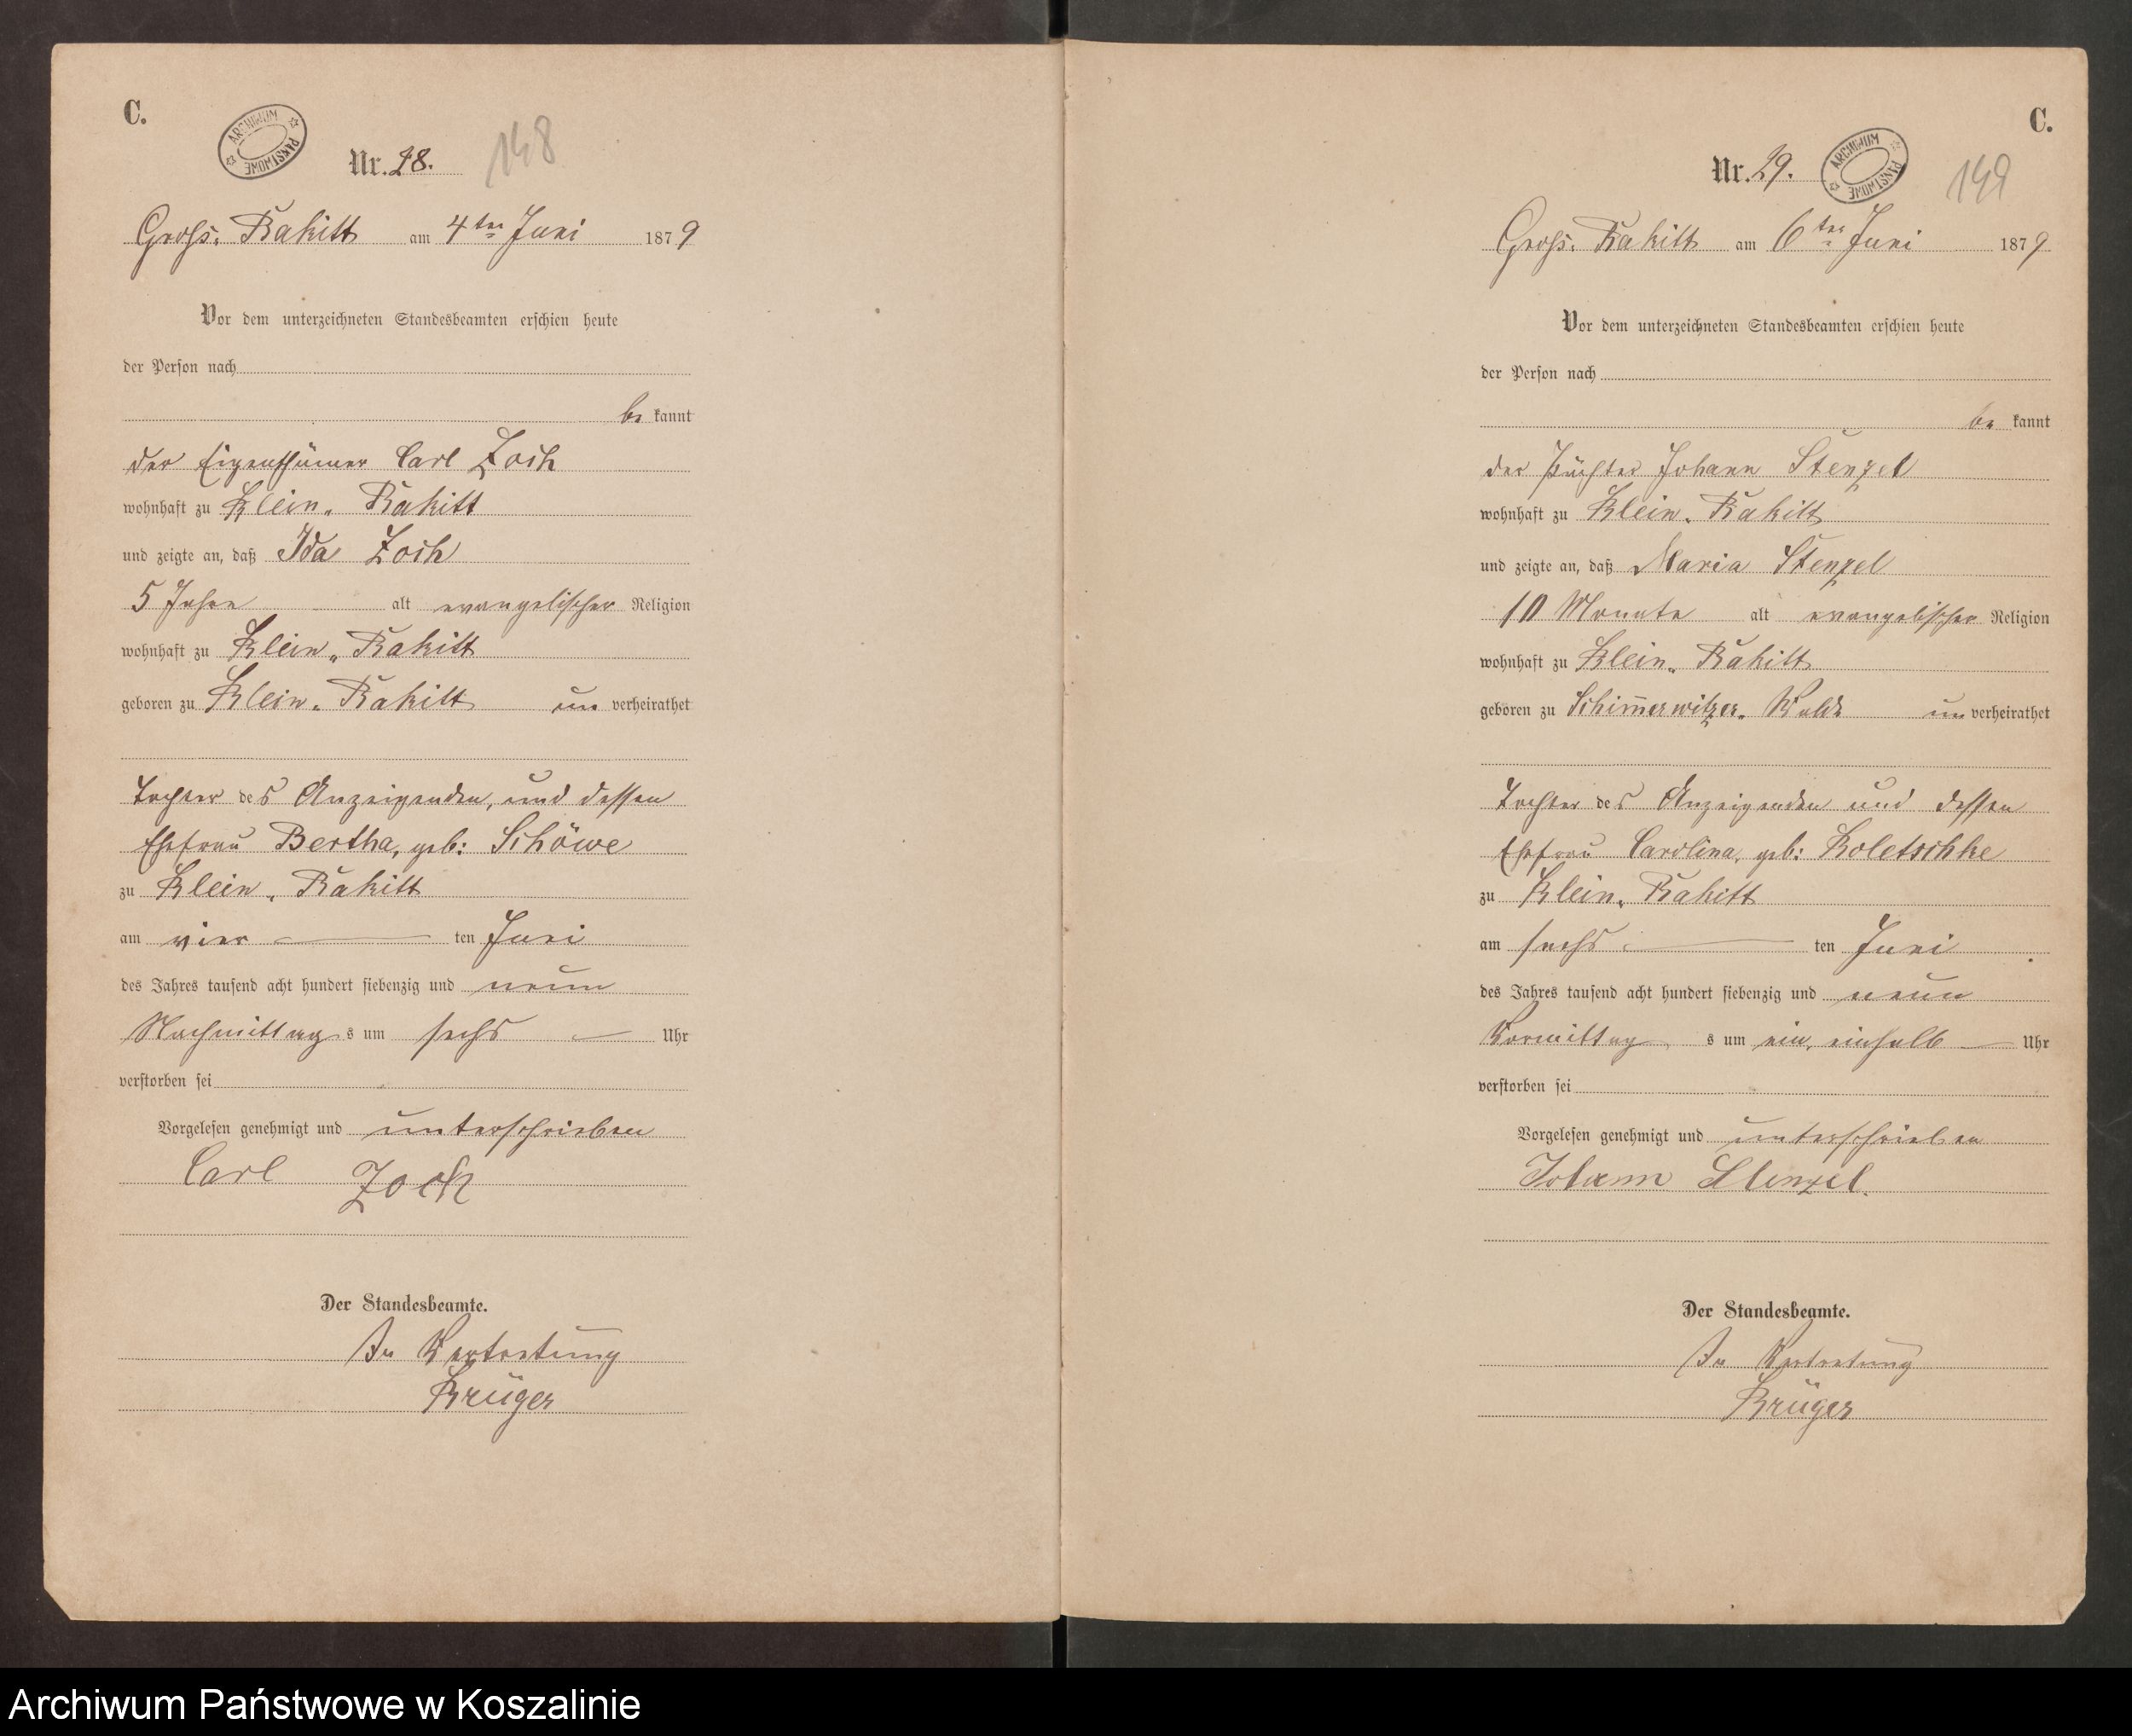 C.
ARCHIWUM PAŃSTWOWE
Nr. 28. 148
Groß. Rakitt am 4ten Juni 1879
Vor dem unterzeichneten Standesbeamten erschien heute
der Person nach
be kannt
der Eigenthümer Carl Zoch
wohnhaft zu Klein. Rakitt
und zeigte an, daß Ida Zoch
5 Jahre alt evangelischer Religion
wohnhaft zu Klein. Rakitt
geboren zu Klein. Rakitt un verheirathet
Tochter des Anzeigenden, und dessen
Ehefrau Bertha, geb: Schöwe
zu Klein. Rakitt
am vier ten Juni
des Jahres tausend acht hundert siebenzig und neun
Nachmittag s um sechs Uhr
verstorben sei
Vorgelesen genehmigt und unterschrieben
Carl Zoch
Der Standesbeamte.
In Vertretung
Krüger
C.
ARCHIWUM PAŃSTWOWE
Nr. 29. 149
Groß. Rakitt am 6ten Juni 1879
Vor dem unterzeichneten Standesbeamten erschien heute
der Person nach
be kannt
der Pächter Johann Stenzel
wohnhaft zu Klein. Rakitt
und zeigte an, daß Maria Stenzel
10 Monate alt evangelischer Religion
wohnhaft zu Klein. Rakitt
geboren zu Schim̄erwitzer. Wald un verheirathet
Tochter des Anzeigenden und dessen
Ehefrau Carolina, geb: Koletschke
zu Klein. Rakitt
am sechs ten Juni
des Jahres tausend acht hundert siebenzig und neun
Vormittag s um ein, einhalb Uhr
verstorben sei
Vorgelesen genehmigt und unterschrieben
Johann Stenzel.
Der Standesbeamte.
In Vertretung
Krüger
Archiwum Państwowe w Koszalinie